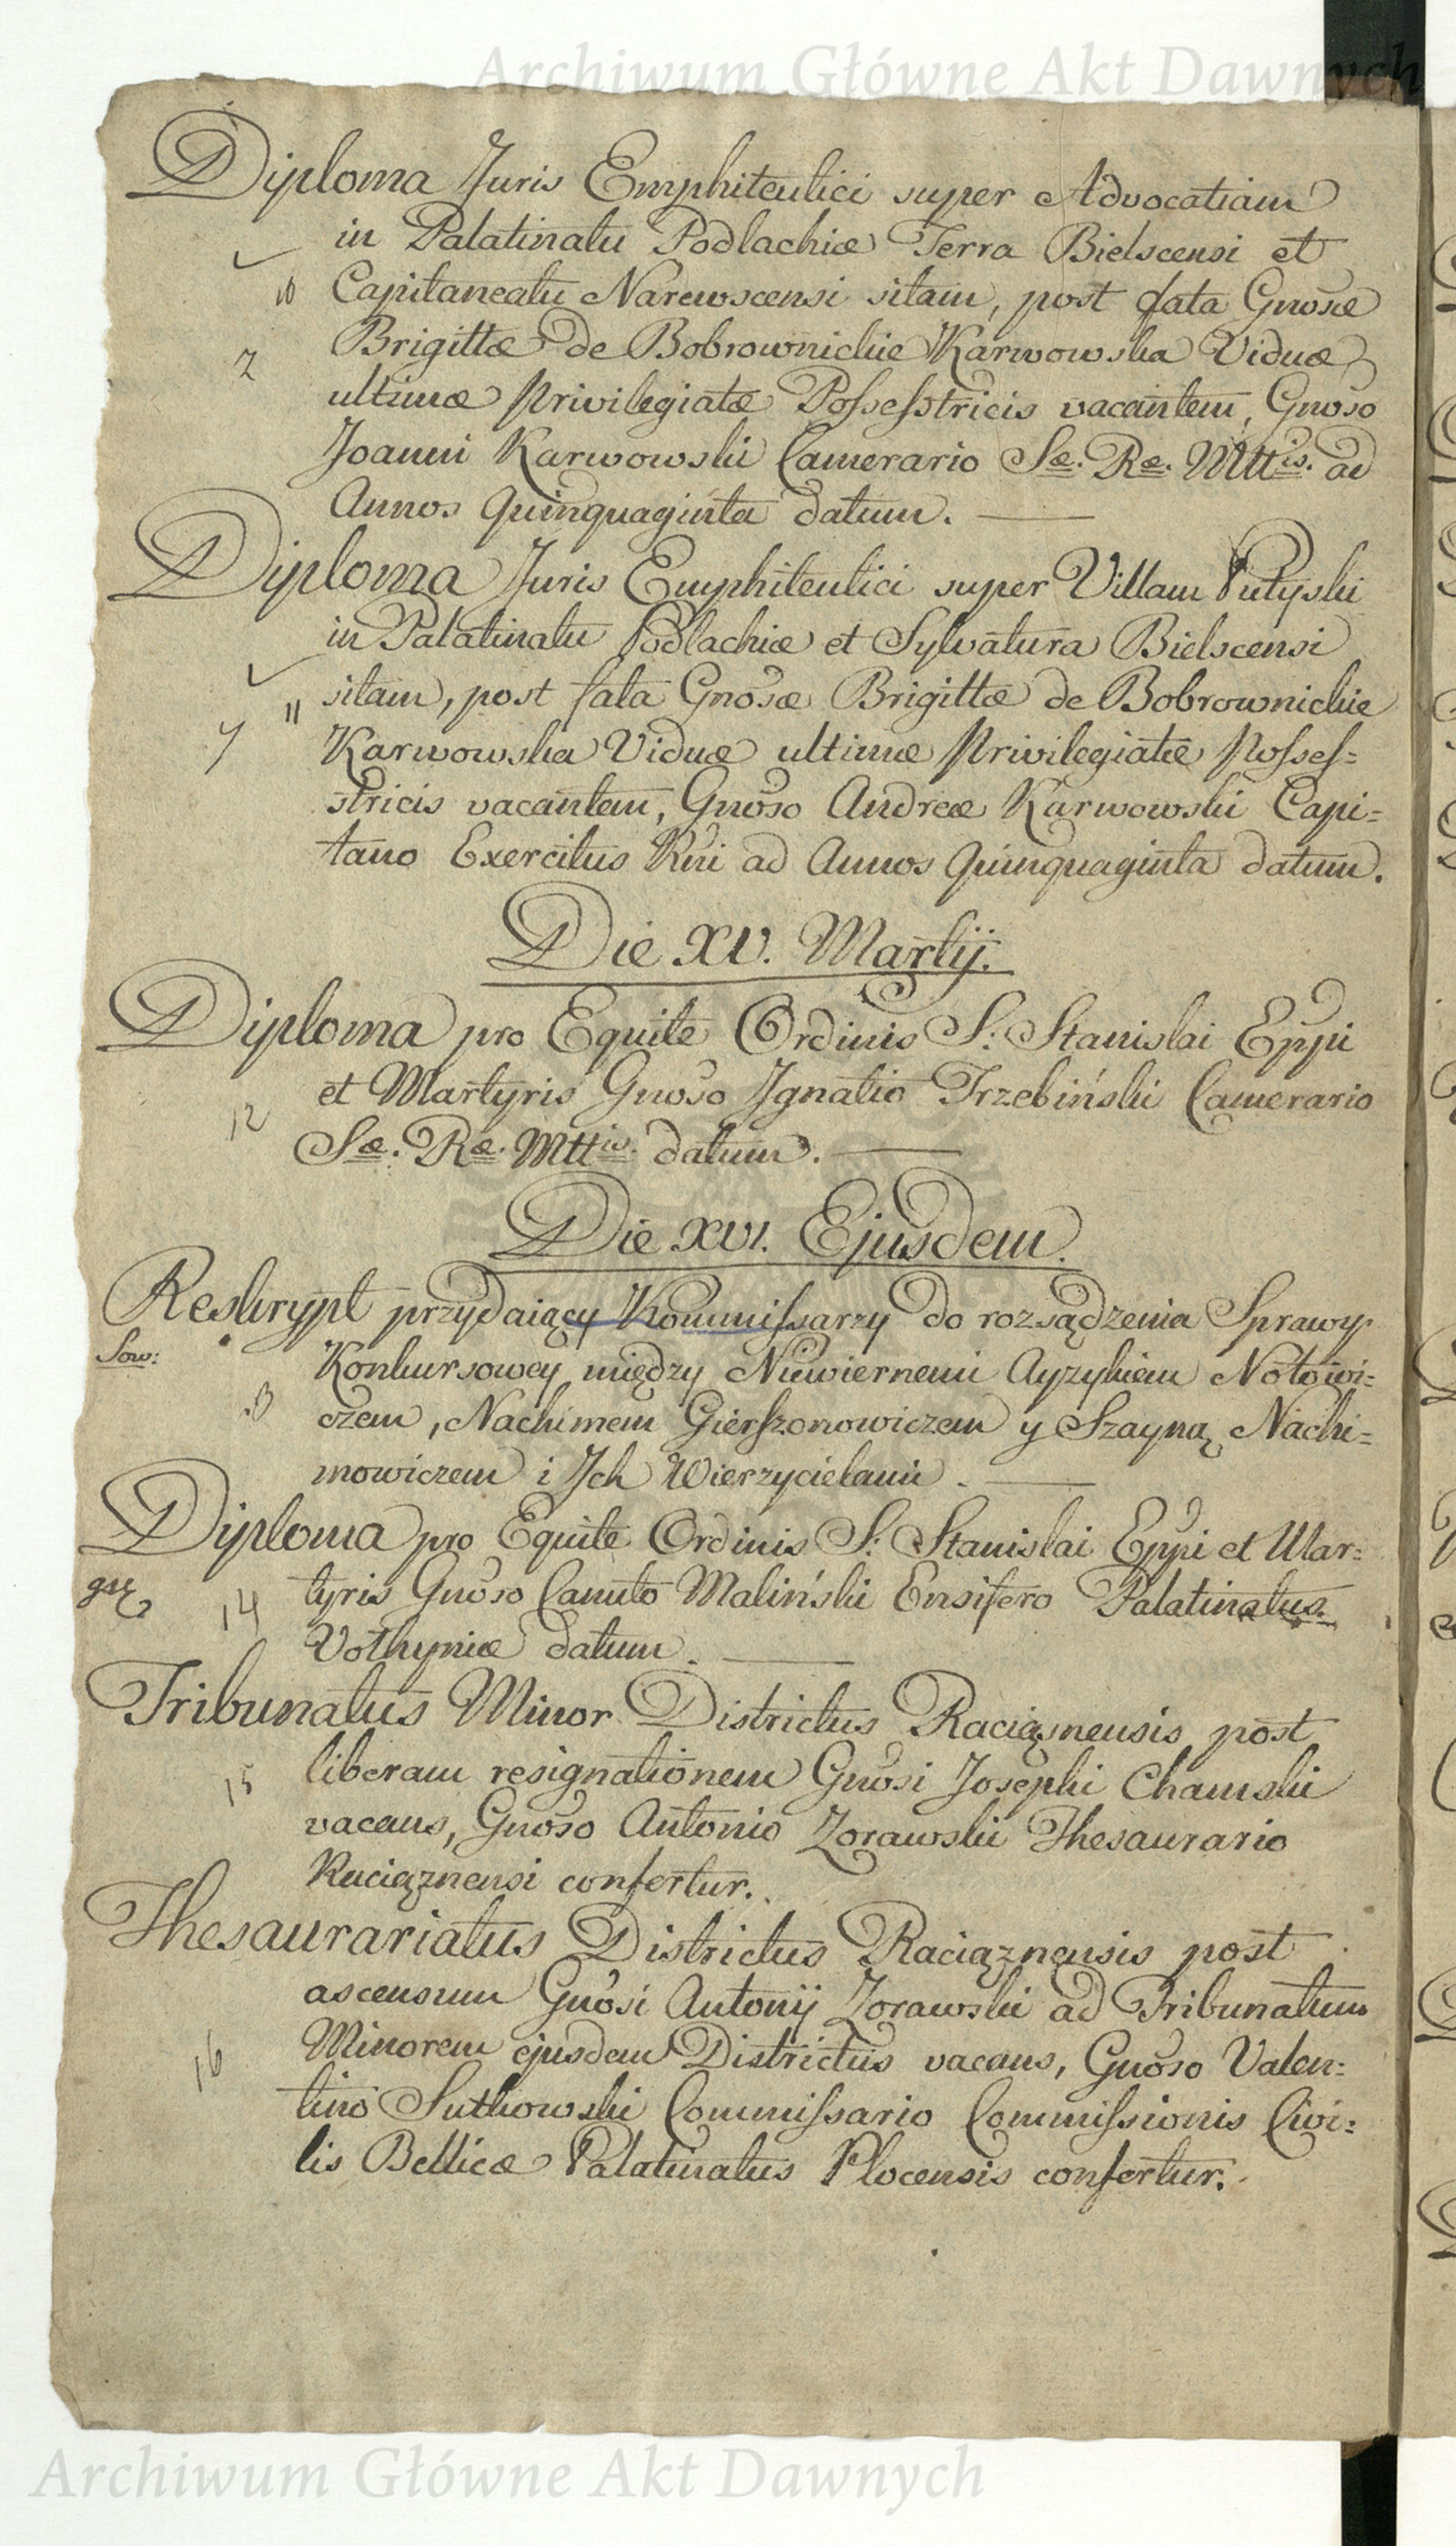 Archiwum Główne Akt Dawnych
Diploma Juris Emphiteutici super Advocatiam
in Palatinatu Podlachiæ Terra Bielscensi et
10 Capitaneatu Narewscensi sitam, post fata Gnosæ
Brigittæ de Bobrownickie Karwowska Viduæ
ultimæ Privilegiatæ Possesstricis vacantem, Gnoso
Joanni Karwowski Camerario Sæ. Ræ. Mttis. ad
Annos Quinquaginta datum.
Diploma Juris Emphiteutici super Villam Pulyski
in Palatinatu Podlachiæ et Sylvatura Bielscensi
11 sitam, post fata Gnosæ Brigittæ de Bobrownickie
Karwowska Viduæ ultimæ Privilegiatæ Posses=
stricis vacantem, Gnoso Andreæ Karwowski Capi=
tano Exercitus Rni ad Annos Quinquaginta datum.
Die XV. Martij.
Diploma pro Equite Ordinis S: Stanislai Eppi
12 et Martyris Gnoso Ignatio Trzebiński Camerario
Sæ. Ræ. Mttis. datum.
Die XVI. Ejusdem.
Reskrypt przydaiący Kommissarzy do rozsądzenia Sprawy
Konkursowey między Niewiernemi Ayzykiem Notowi=
13 czem, Nachimem Gierszonowiczem y Szayną Nachi=
mowiczem i Ich Wierzycielami.
Diploma pro Equite Ordinis S: Stanislai Eppi et Mar=
14 tyris Gnoso Canuto Maliński Ensifero Palatinatus
Volhyniæ datum.
Tribunatus Minor Districtus Raciąsnensis post
15 liberam resignationem Gnosi Josephi Chamski
vacans, Gnoso Antonio Zorawski Thesaurario
Raciąznensi confertur.
Thesaurariatus Districtus Raciąznensis post
ascensum Gnosi Antonij Zorawski ad Tribunatum
16 Minorem ejusdem Districtus vacans, Gnoso Valen=
tino Sutkowski Commissario Commissionis Civi=
lis Bellicæ Palatinatus Plocensis confertur.
Archiwum Główne Akt Dawnych